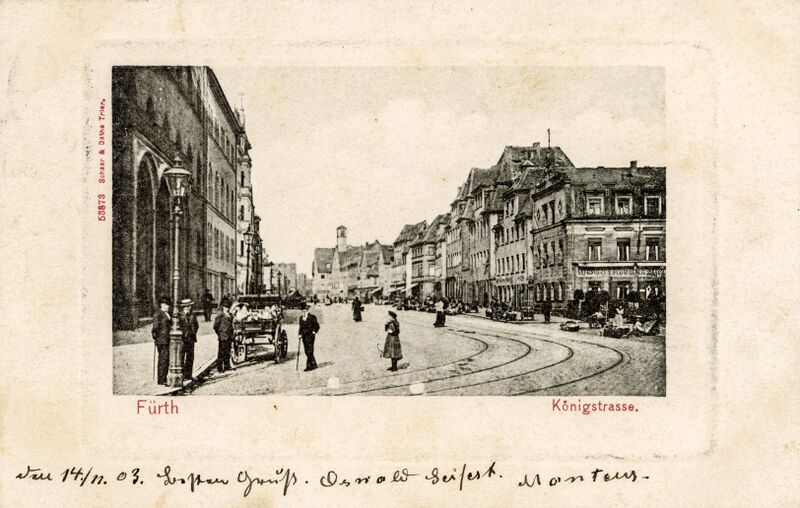 53873 Schaar & Dathe Trier.
Fürth
Königstrasse.
den 14./11. 03. Besten Gruß. Oswald Seifert.